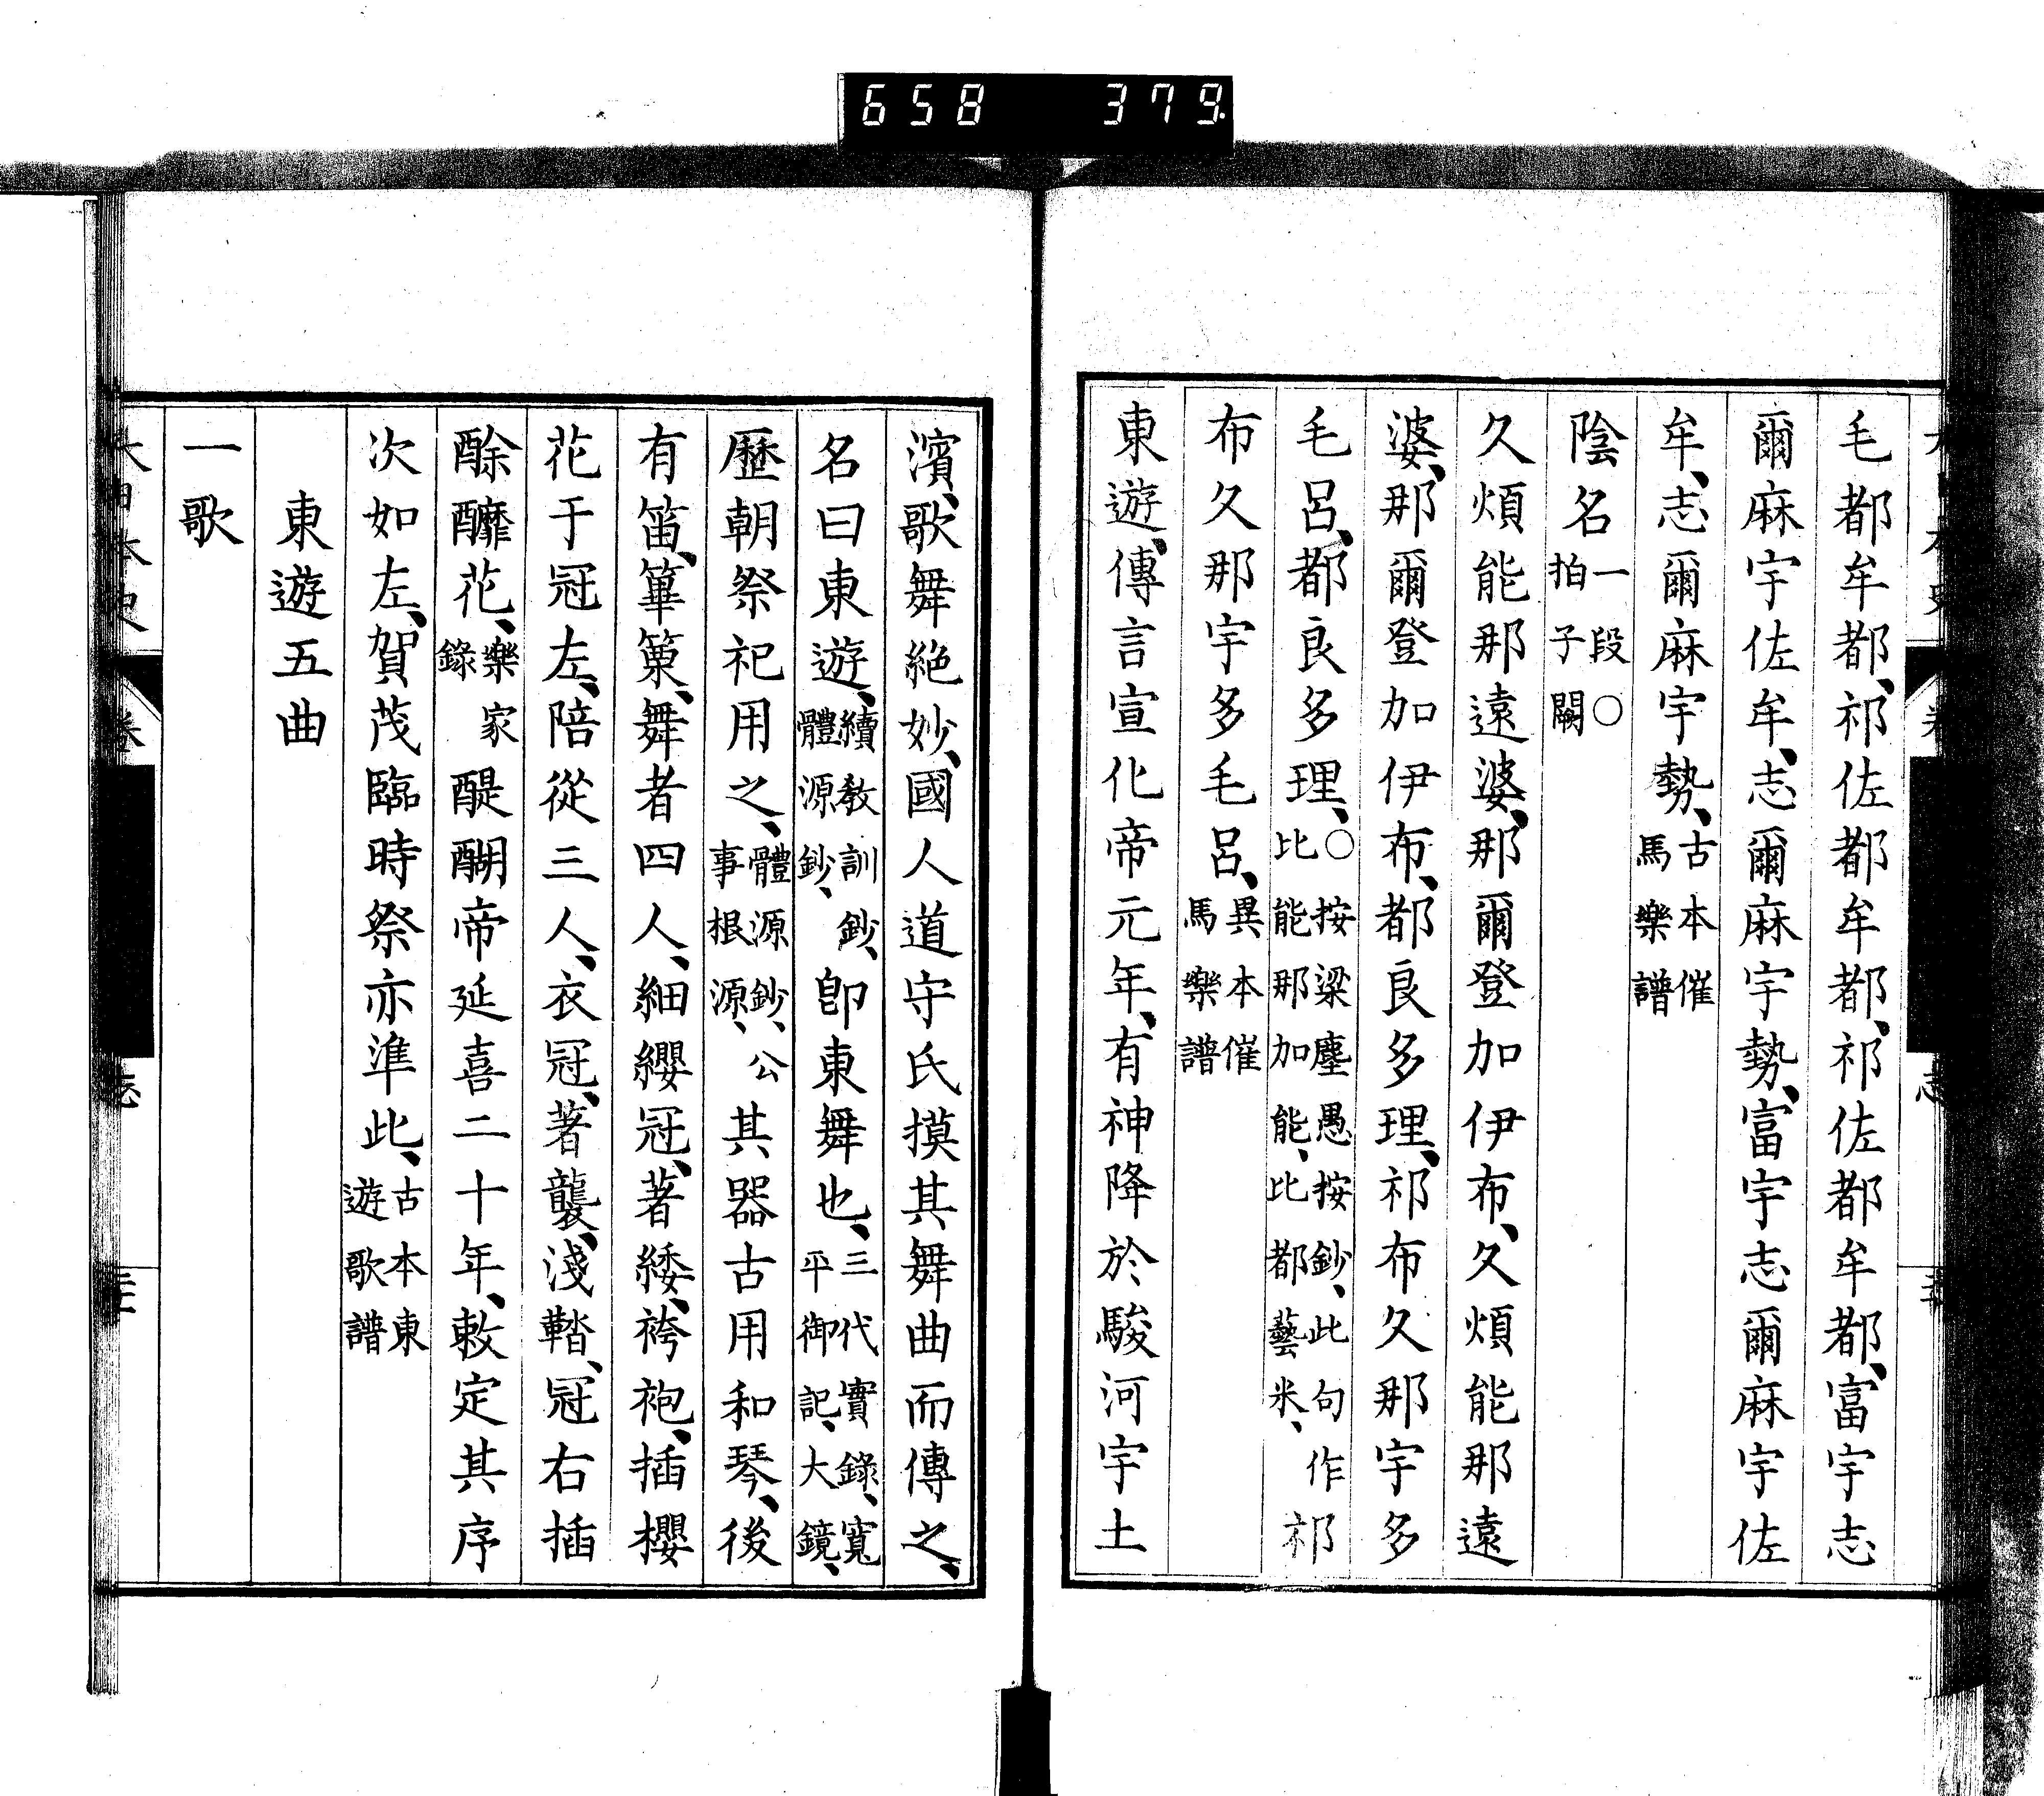 658 379
毛都牟都、祁佐都牟都、祁佐都牟都、富宇志
爾麻宇佐牟、志爾麻宇勢、富宇志爾麻宇佐
牟、志爾麻宇勢、古本催馬樂譜
陰名一段○拍子闕
久煩能那遠婆、那爾登加伊布、久煩能那遠
婆、那爾登加伊布、都良多理、祁布久那宇多
毛呂、都良多理、○按梁塵愚按鈔、此句作比能那加能、比都藝米、祁
布久那宇多毛呂、異本催馬樂譜
東遊、傳言宣化帝元年、有神降於駿河宇土
濱、歌舞絶妙、國人道守氏摸其舞曲而傳之、
名曰東遊、續教訓鈔、體源鈔、卽東舞也、三代實錄、寬平御記、大鏡、
歷朝祭祀用之、體源鈔、公事根源、其器古用和琴、後
有笛、篳篥、舞者四人、細纓冠、著緌、袴袍、插櫻
花于冠左、陪從三人、衣冠、著襲、淺鞜、冠右插
酴醾花、樂家錄醍醐帝延喜二十年、敕定其序
次如左、賀茂臨時祭亦準此、古本東遊歌譜
東遊五曲
一歌
大日本史
卷
志